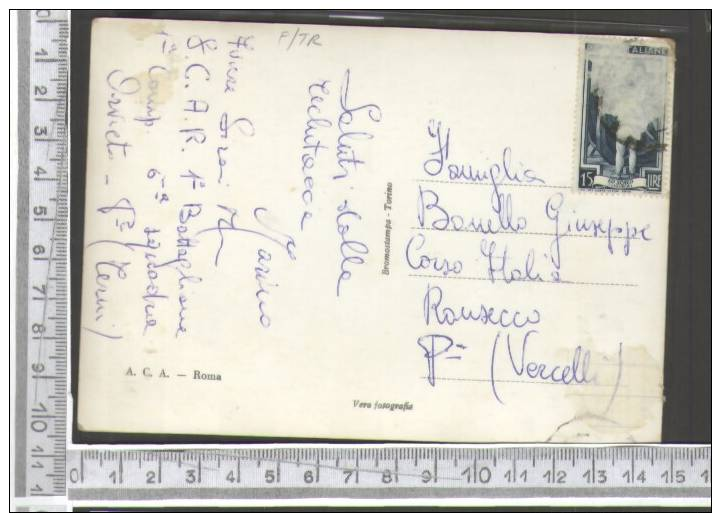 F/TR
S. C. A. R. 1° Battaglione
1ª Comp. 6ª squadra
Orvieto - Pª (Terni)
Saluti dalla
Marino
ALIANE
15 LIRE
Famiglia
Bonello Giuseppe
Corso Italia
Ronsecco
Pª (Vercelli)
Bromostampa - Torino
A. C. A. — Roma
Vera fotografia
0 1 2 3 4 5 6 7 8 9 10 11
0 1 2 3 4 5 6 7 8 9 10 11 12 13 14 15 1